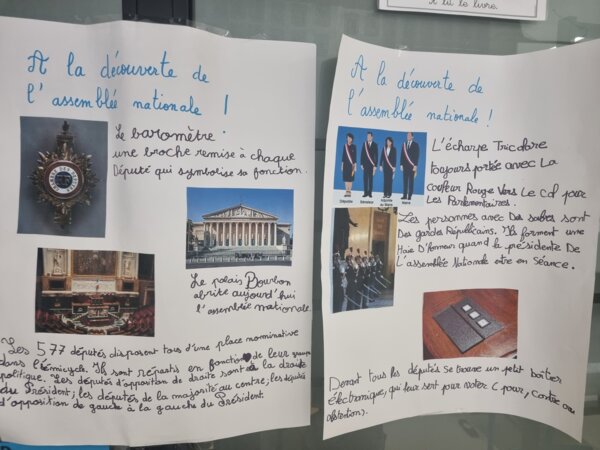 A lu le livre
A la découverte de
l'assemblée nationale !
Le baromètre :
une broche remise à chaque
Député qui symbolise sa fonction.
Le palais Bourbon
abrite aujourd'hui
l'assemblée nationale.
Les 577 députés disposent tous d'une place nominative
dans l'émicycle. Ils sont répartis en fonction de leur groupe
politique. Les députés d'opposition de droite sont à la droite
du Président ; les députés de la majorité au centre, les députés
d'opposition de gauche à la gauche du Président.
A la découverte de
l'assemblée nationale !
Députée Sénateur Adjointe au Maire Maire
L'écharpe Tricolore
toujours portée avec La
couleur Rouge Vers Le Col pour
Les Parlementaires.
Les personnes avec Des sabres sont
Des gardes Républicains. Ils forment une
Haie D'honneur quand le présidente De
L'assemblée Nationale entre en Séance.
Devant tous les députés se trouve un petit boîtier
électronique, qui leur sert pour voter (pour, contre ou
abstention).